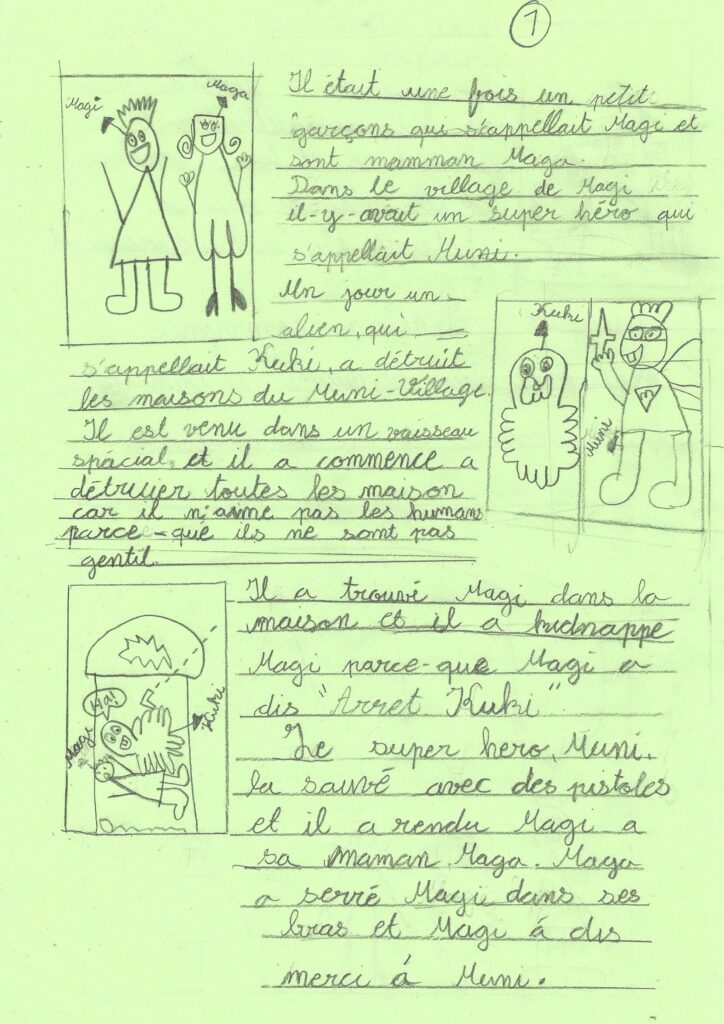 1
Magi
Maga
Il était une fois un petit
garçons qui s'appellait Magi et
sont mamman Maga.
Dans le village de Magi
il-y-avait un super héro qui
s'appellait Muni.
Un jour un
alien, qui
s'appellait Kuki, a détruit
les maisons du Muni-Village.
Il est venu dans un vaisseau
spácial, et il a commence a
détruier toutes les maison
car il n'aime pas les humans
parce-que ils ne sont pas
gentil.
Kuki
Muni
Il a trouvé Magi dans la
maison et il a kidnappé
Magi parce-que Magi a
dis "Arret Kuki".
Le super hero, Muni,
la sauvé avec des pistoles
et il a rendu Magi a
sa maman Maga. Maga
a serré Magi dans ses
bras et Magi á dis
merci á Muni.
Ha!
Magi
Kuki